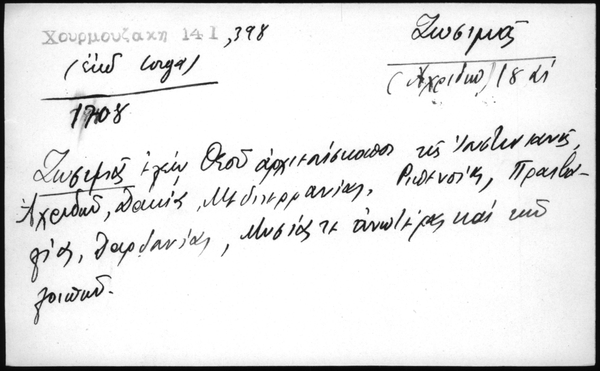 Χουρμουζάκη 14 I, 398
(ἐκδ Iorga)
1708
Ζωσιμᾶς
(Ἀχριδῶν) 18 αἰ
Ζωσιμᾶς ἐλέῳ Θεοῦ ἀρχιεπίσκοπος τῆς Ἰουστινιανῆς,
Ἀχριδῶν, Δακίας, Μεδιτερρανίας, Ριπενσίας, Πραιβα-
λίας, Δαρδανίας, Μυσίας τε ἀνωτέρας καὶ τῶν
λοιπῶν.